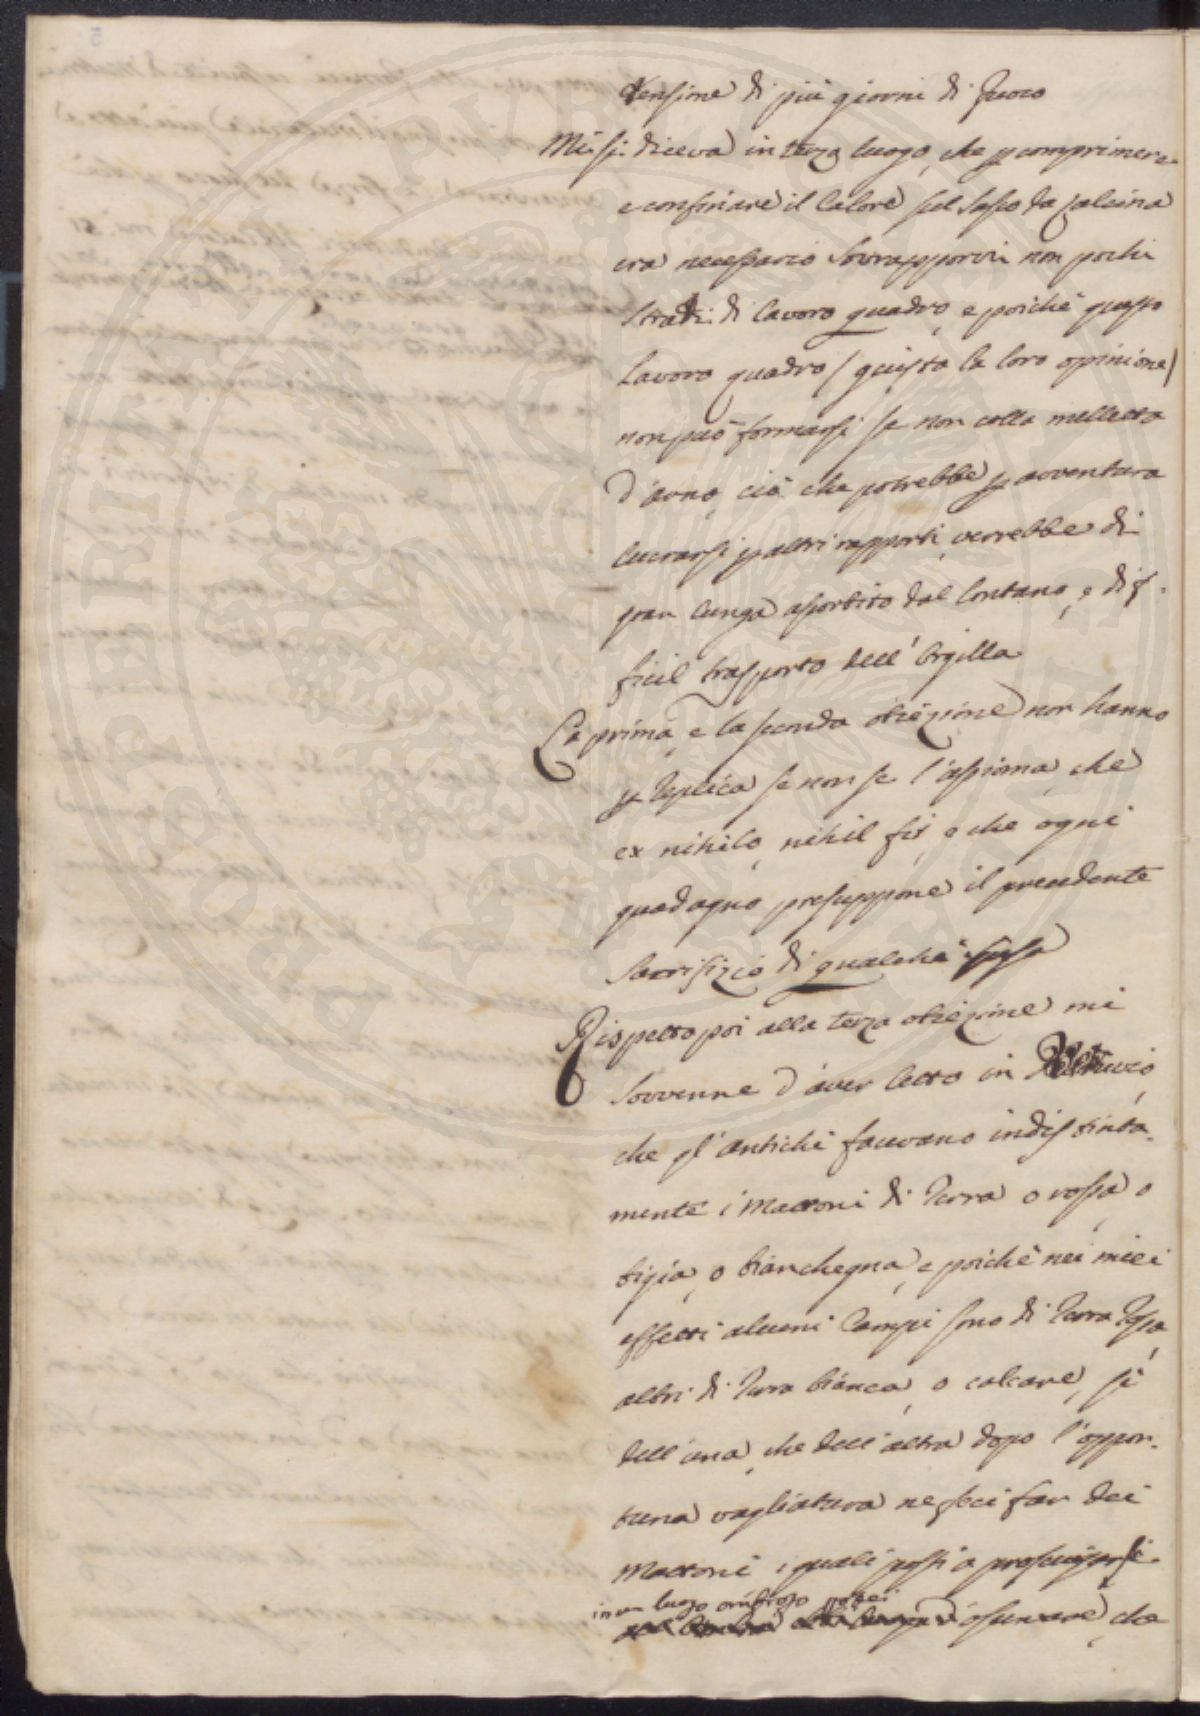 tensione di più giorni di Fuoco
Mi si diceva in terzo luogo, che p comprimere
e confinare il Calore sul Sasso da calcina
era necessario sovrapporvi non pochi
strati di lavoro quadro, e poichè questo
lavoro quadro (giusta la loro opinione)
non può formarsi se non colla melletta
d'Arno, ciò che potrebbe p avventura
lucrarsi p altri rapporti, verrebbe di
gran lunga assorbito dal lontano, e dif-
ficil trasporto dell'Argilla
La prima, e la seconda obiezione non hanno
p replica se non se l'assioma, che
ex nihilo, nihil fit, e che ogni
guadagno presuppone il precedente
sacrifizio di qualche spesa
Rispetto poi alla terza obiezione mi
sovvenne d'aver letto in Vitruvio,
che gl'antichi facevano indistinta-
mente i Mattoni di Terra o rossa, o
bigia, o bianchegna, e poichè nei miei
effetti alcuni Campi sono di Terra rossa,
altri di Terra bianca, o calcare, sì
dell'una, che dell'altra dopo l'oppor-
tuna vagliatura ne feci far dei
Mattoni, i quali posti a prosciugarsi
in un luogo ombroso potei
osservare, che
PROPERTIUM PUBLICUM